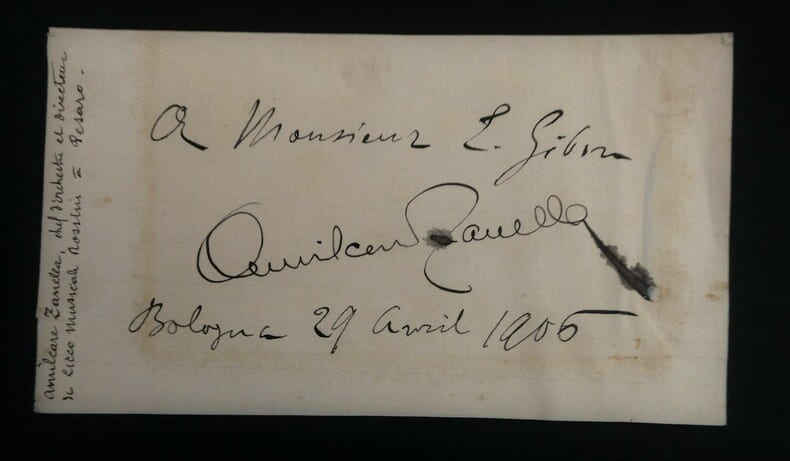 A Monsieur L. Gibon
Amilcare Zanella
Bologna 29 Avril 1906
Amilcare Zanella, chef d'orchestre et directeur
du Liceo Musicale Rossini à Pesaro.